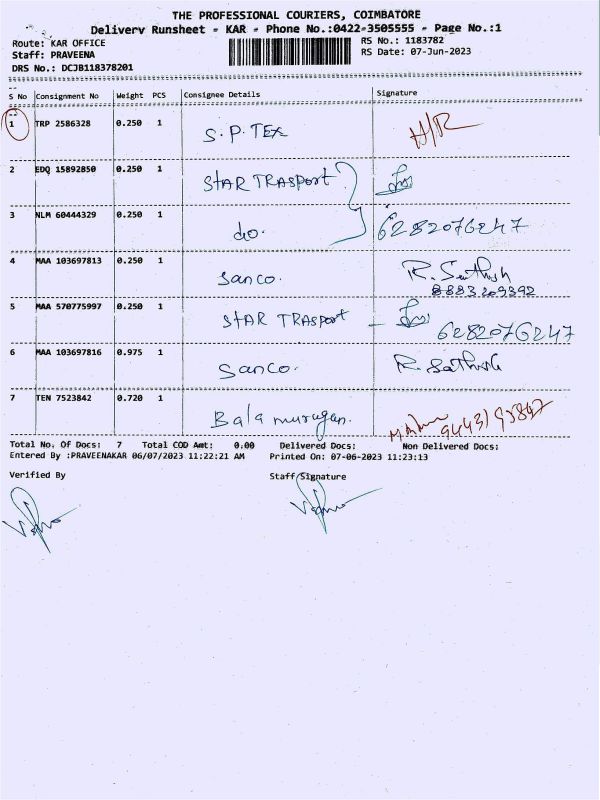 THE PROFESSIONAL COURIERS, COIMBATORE
Delivery Runsheet - KAR - Phone No.:0422-3505555 - Page No.:1
Route: KAR OFFICE
RS No.: 1183782
Staff: PRAVEENA
RS Date: 07-Jun-2023
DRS No.: DCJB118378201
S No Consignment No Weight PCS Consignee Details Signature
1 TRP 2586328 0.250 1 S.P.TEX H/R
2 EDQ 15892850 0.250 1 STAR TRASPORT
3 NLM 60444329 0.250 1 do. 6282076247
4 MAA 103697813 0.250 1 Sanco. R. Sathish
8883209392
5 MAA 570775997 0.250 1 STAR TRASPORT -
6282076247
6 MAA 103697816 0.975 1 Sanco. R. Sathish
7 TEN 7523842 0.720 1 Balamurugan.
Total No. Of Docs: 7 Total COD Amt: 0.00 Delivered Docs: Non Delivered Docs:
Entered By :PRAVEENAKAR 06/07/2023 11:22:21 AM Printed On: 07-06-2023 11:23:13
Verified By Staff Signature